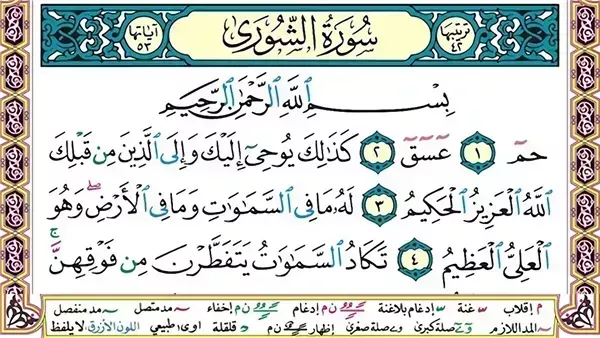 ترتيبها ٤٢ سُورَةُ الشُّورَىٰ آياتها ٥٣
بِسْمِ ٱللَّهِ ٱلرَّحْمَٰنِ ٱلرَّحِيمِ
حمٓ ١ عٓسٓقٓ ٢ كَذَٰلِكَ يُوحِىٓ إِلَيْكَ وَإِلَى ٱلَّذِينَ مِن قَبْلِكَ
ٱللَّهُ ٱلْعَزِيزُ ٱلْحَكِيمُ ٣ لَهُۥ مَا فِى ٱلسَّمَٰوَٰتِ وَمَا فِى ٱلْأَرْضِ ۖ وَهُوَ
ٱلْعَلِىُّ ٱلْعَظِيمُ ٤ تَكَادُ ٱلسَّمَٰوَٰتُ يَتَفَطَّرْنَ مِن فَوْقِهِنَّ ۚ
م إقلاب غنة إدغام بلاغنة ن م إدغام إخفاء مد متصل مد منفصل
المد اللازم صلة كبرى صلة صغرى إظهار ن م قلقلة اوى طبيعي اللون الأزرق لا يلفظ